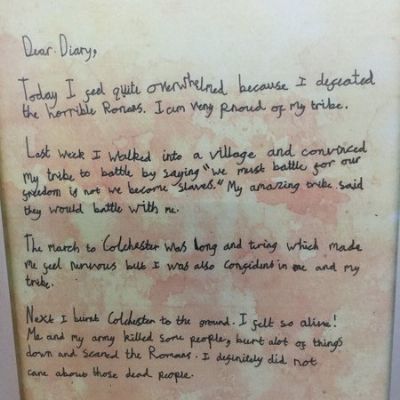 Dear Diary,
Today I feel quite overwhelmed because I defeated
the horrible Romans. I am very proud of my tribe.
Last week I walked into a village and convinced
my tribe to battle by saying "we must battle for our
freedom is not we become slaves." My amazing tribe said
they would battle with me.
The march to Colchester was long and tiring which made
me feel nervous but I was also confident in me and my
tribe.
Next I burnt Colchester to the ground. I felt so alive!
Me and my army killed some people, burnt alot of things
down and scared the Romans. I definitely did not
care about those dead people.